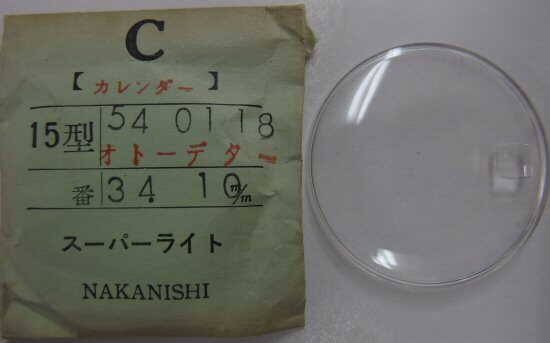 C
【カレンダー】
15型 54 01 18
オトーデター
番 34. 10 m/m
スーパーライト
NAKANISHI